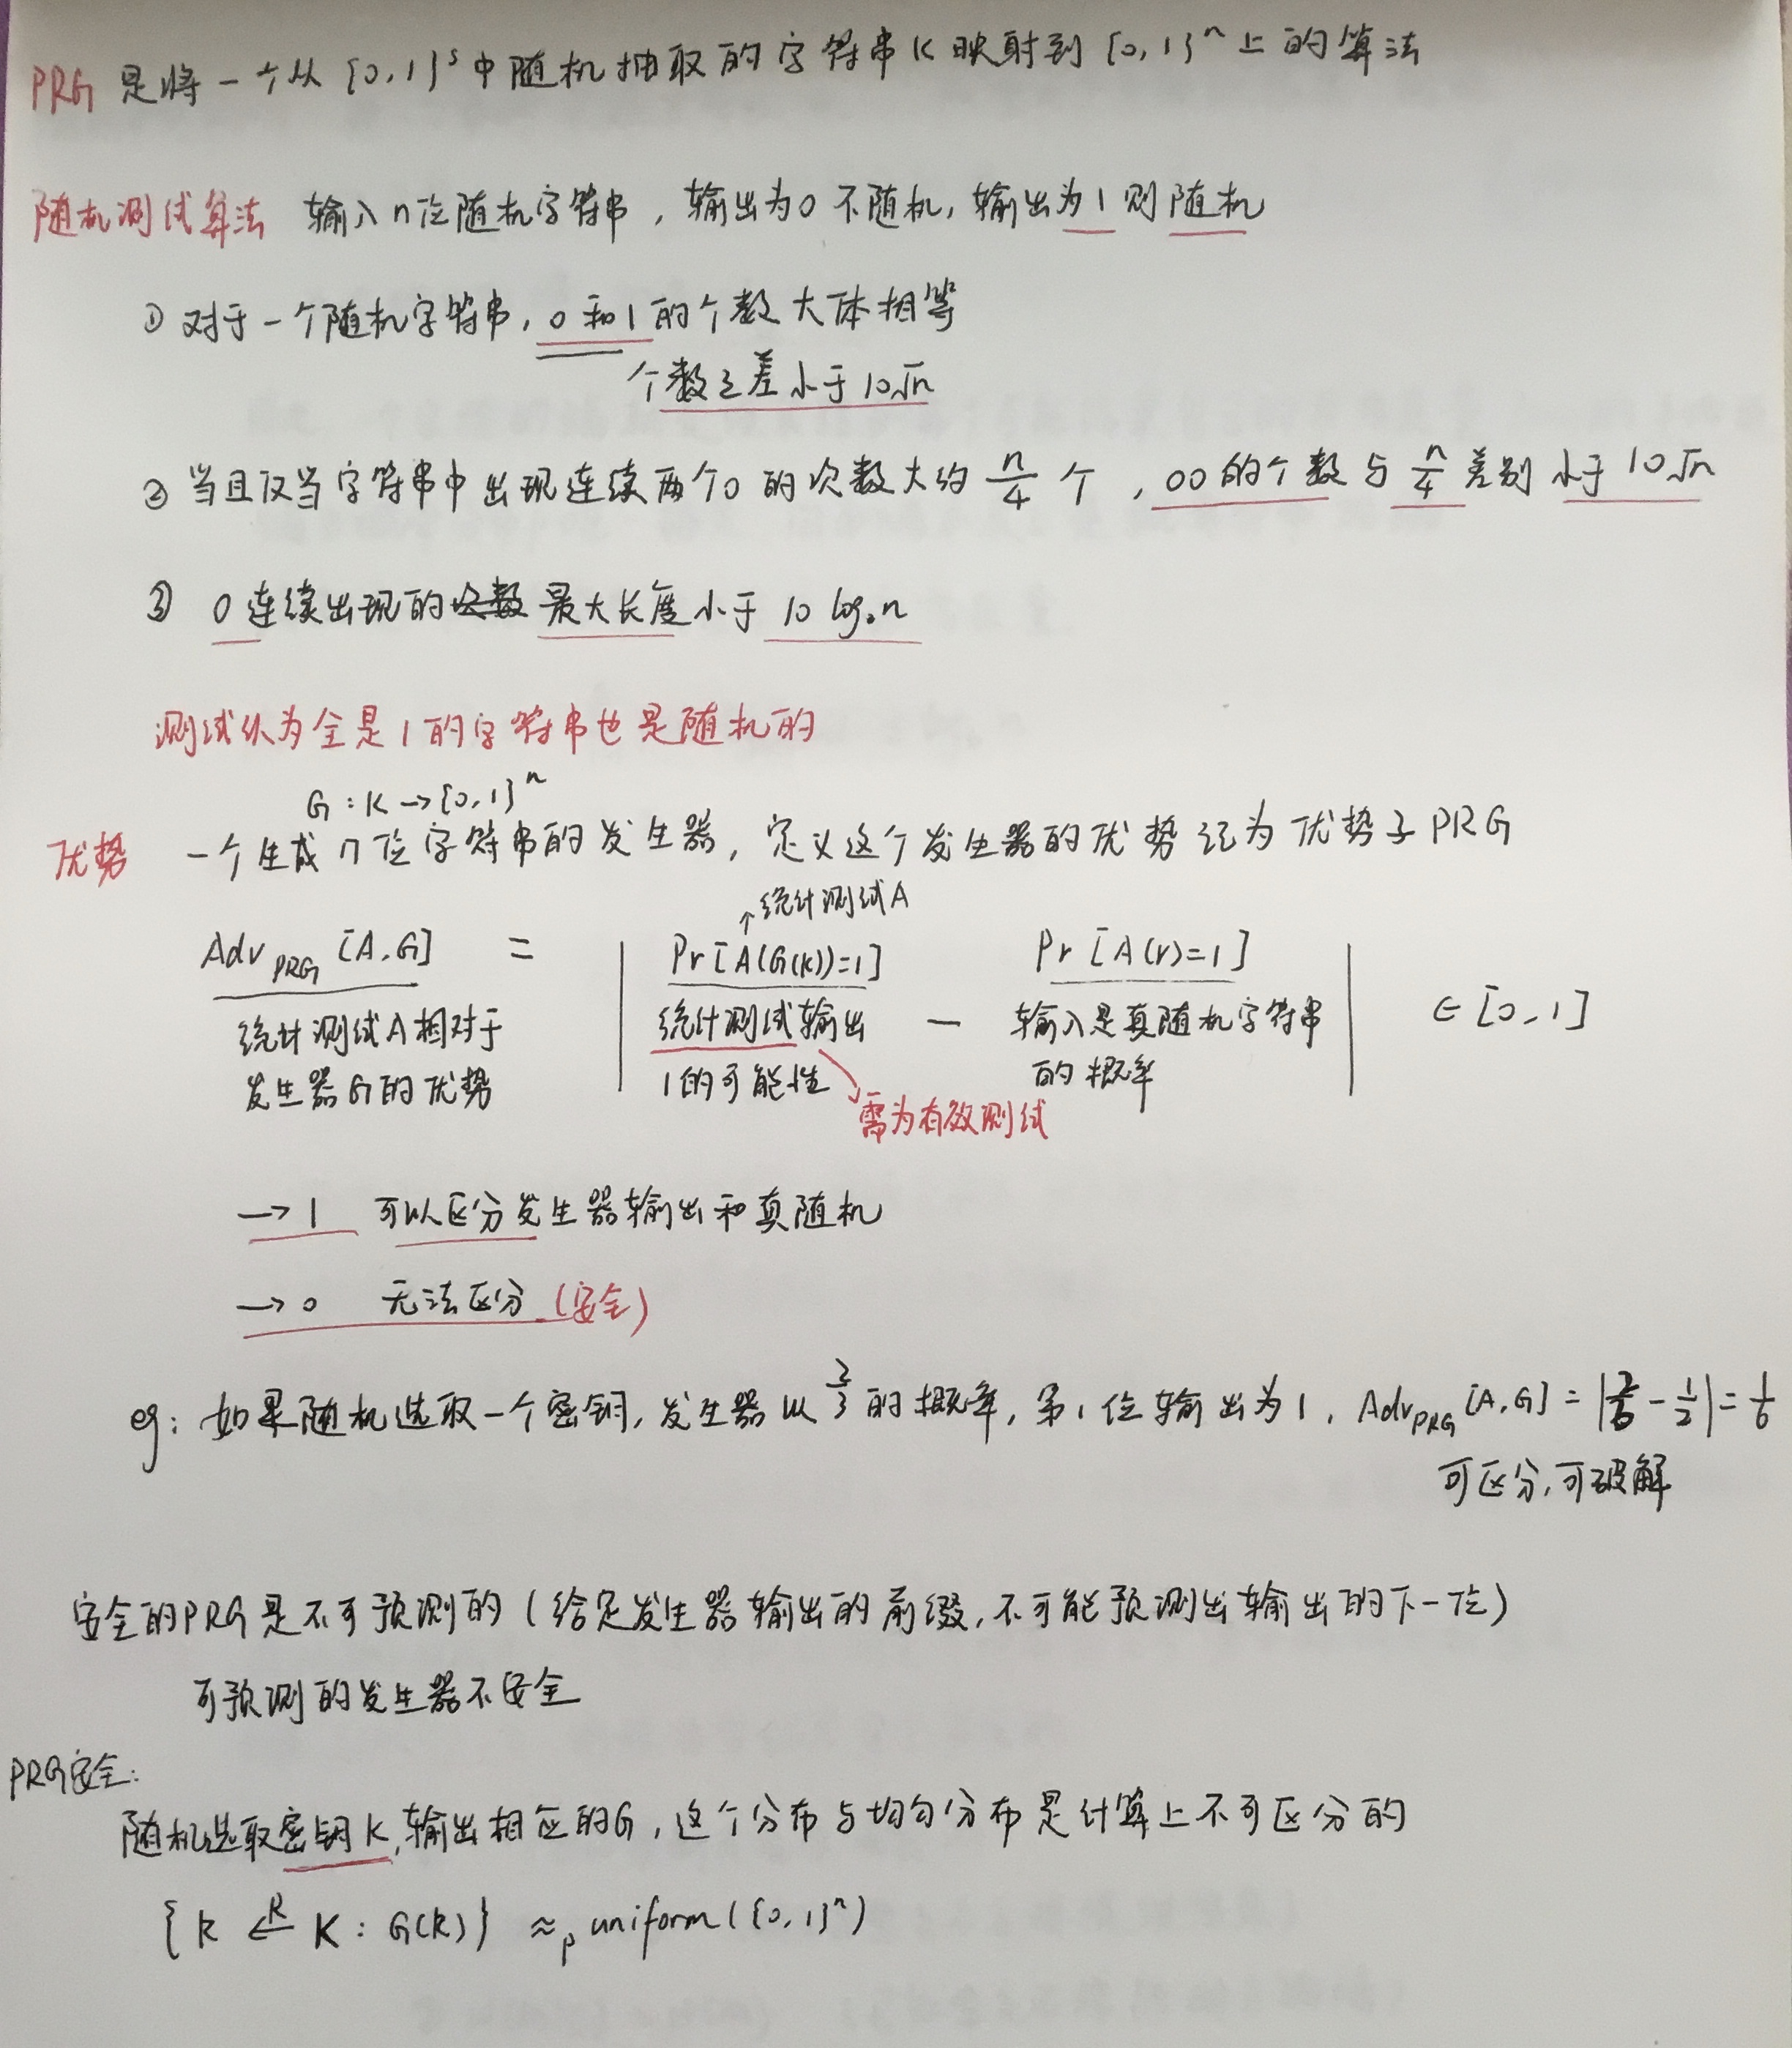 PRG 是将一个从{0,1}ˢ中随机抽取的字符串K映射到{0,1}ⁿ上的算法
随机测试算法 输入n位随机字符串，输出为0不随机，输出为1则随机
① 对于一个随机字符串，0和1的个数大体相等
个数之差小于10√n
② 当且仅当字符串中出现连续两个0的次数大约 n/4 个，00的个数与 n/4 差别小于10√n
③ 0连续出现的最大长度小于 10 log₂n
测试认为全是1的字符串也是随机的
G：K→{0,1}ⁿ
优势 一个生成n位字符串的发生器，定义这个发生器的优势记为优势子PRG
↑统计测试A
Adv_PRG [A,G] = | Pr[A(G(k))=1] − Pr[A(r)=1] | ∈[0,1]
统计测试A相对于 统计测试输出 — 输入是真随机字符串
发生器G的优势 1的可能性 的概率
需为有效测试
→1 可以区分发生器输出和真随机
→0 无法区分（安全）
eg：如果随机选取一个密钥，发生器以 2/3 的概率，第1位输出为1，Adv_PRG[A,G]=|2/3−1/2|=1/6
可区分，可破解
安全的PRG是不可预测的（给定发生器输出的前缀，不可能预测出输出的下一位）
可预测的发生器不安全
PRG安全：
随机选取密钥K，输出相应的G，这个分布与均匀分布是计算上不可区分的
{k ←ᴿ K：G(k)} ≈ₚ uniform({0,1}ⁿ)